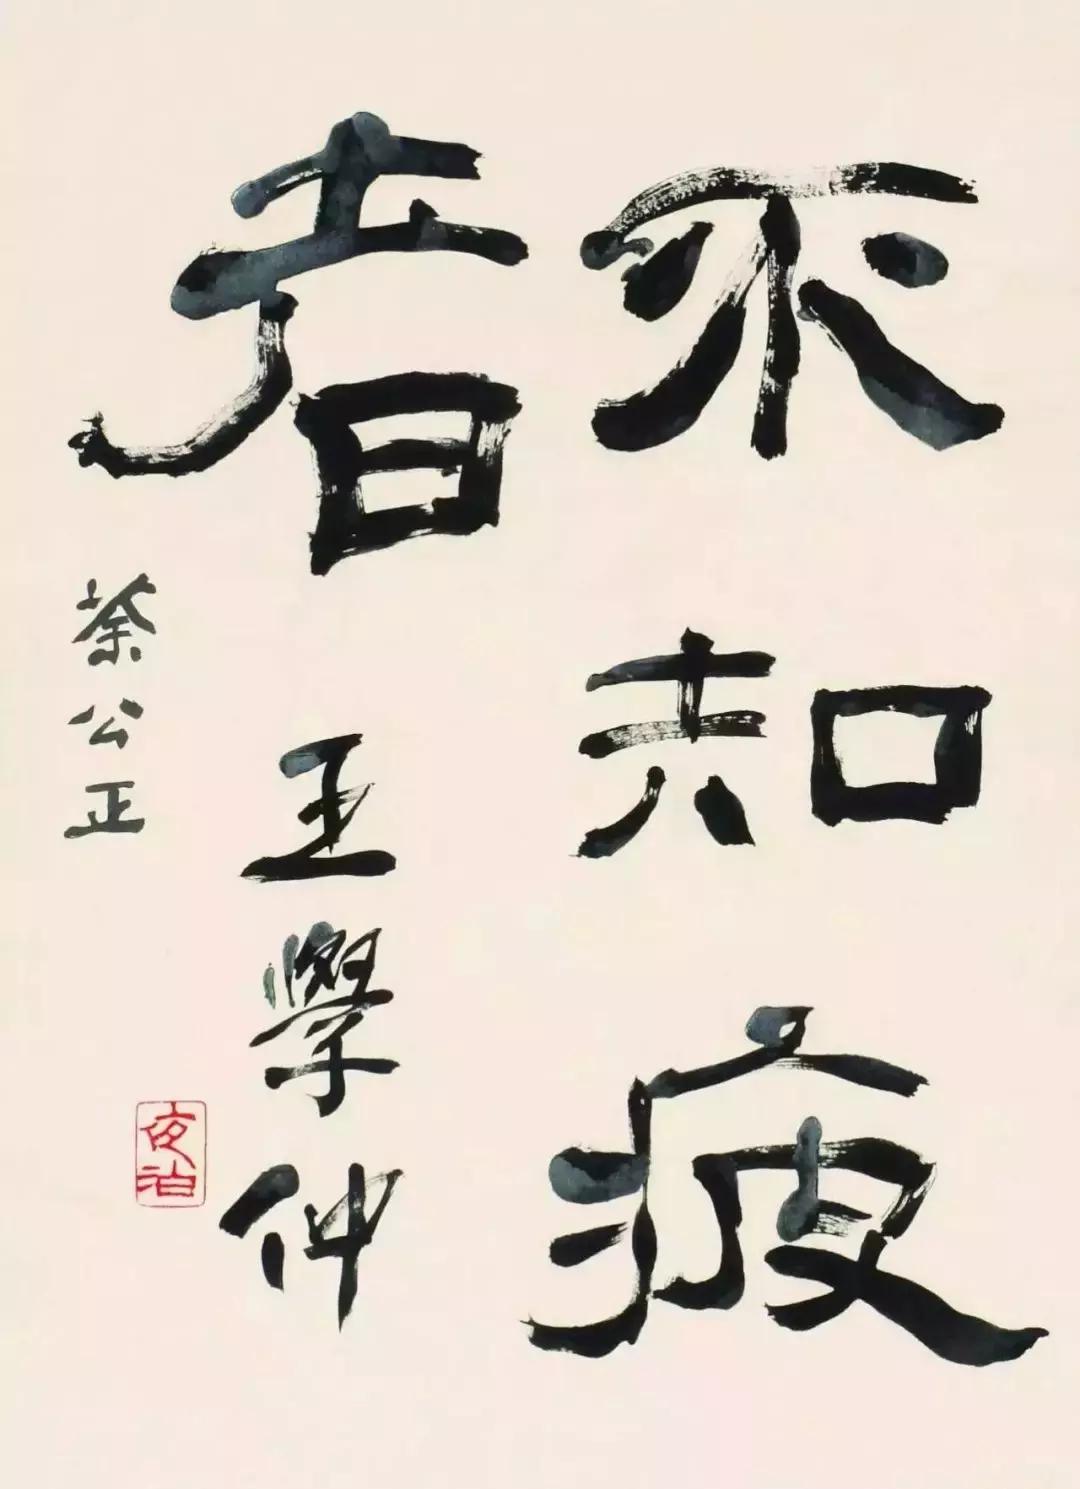 不知疲
者
王學仲
公正
夜泊